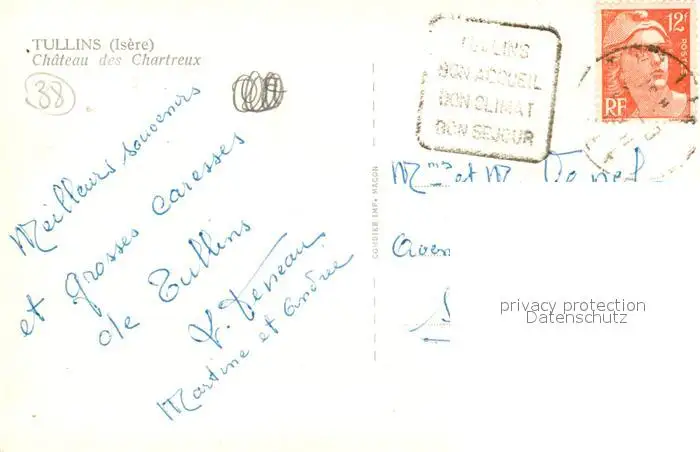 TULLINS (Isère)
Château des Chartreux
38
Meilleurs souvenirs
et grosses caresses
de Tullins
Martine et Andrée
COMBIER IMP. MACON
TULLINS
BON ACCUEIL
BON CLIMAT
BON SEJOUR
12F
POSTES
RF
Mme et M.
privacy protection
Datenschutz